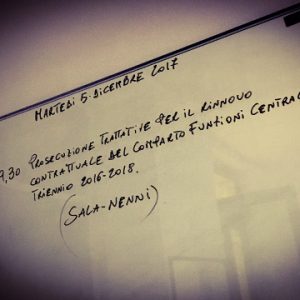 MARTEDI 5. DICEMBRE 2017
9,30 PROSECUZIONE TRATTATIVE PER IL RINNOVO
CONTRATTUALE DEL COMPARTO FUNZIONI CENTRALI
TRIENNIO 2016-2018.
(SALA-NENNI)